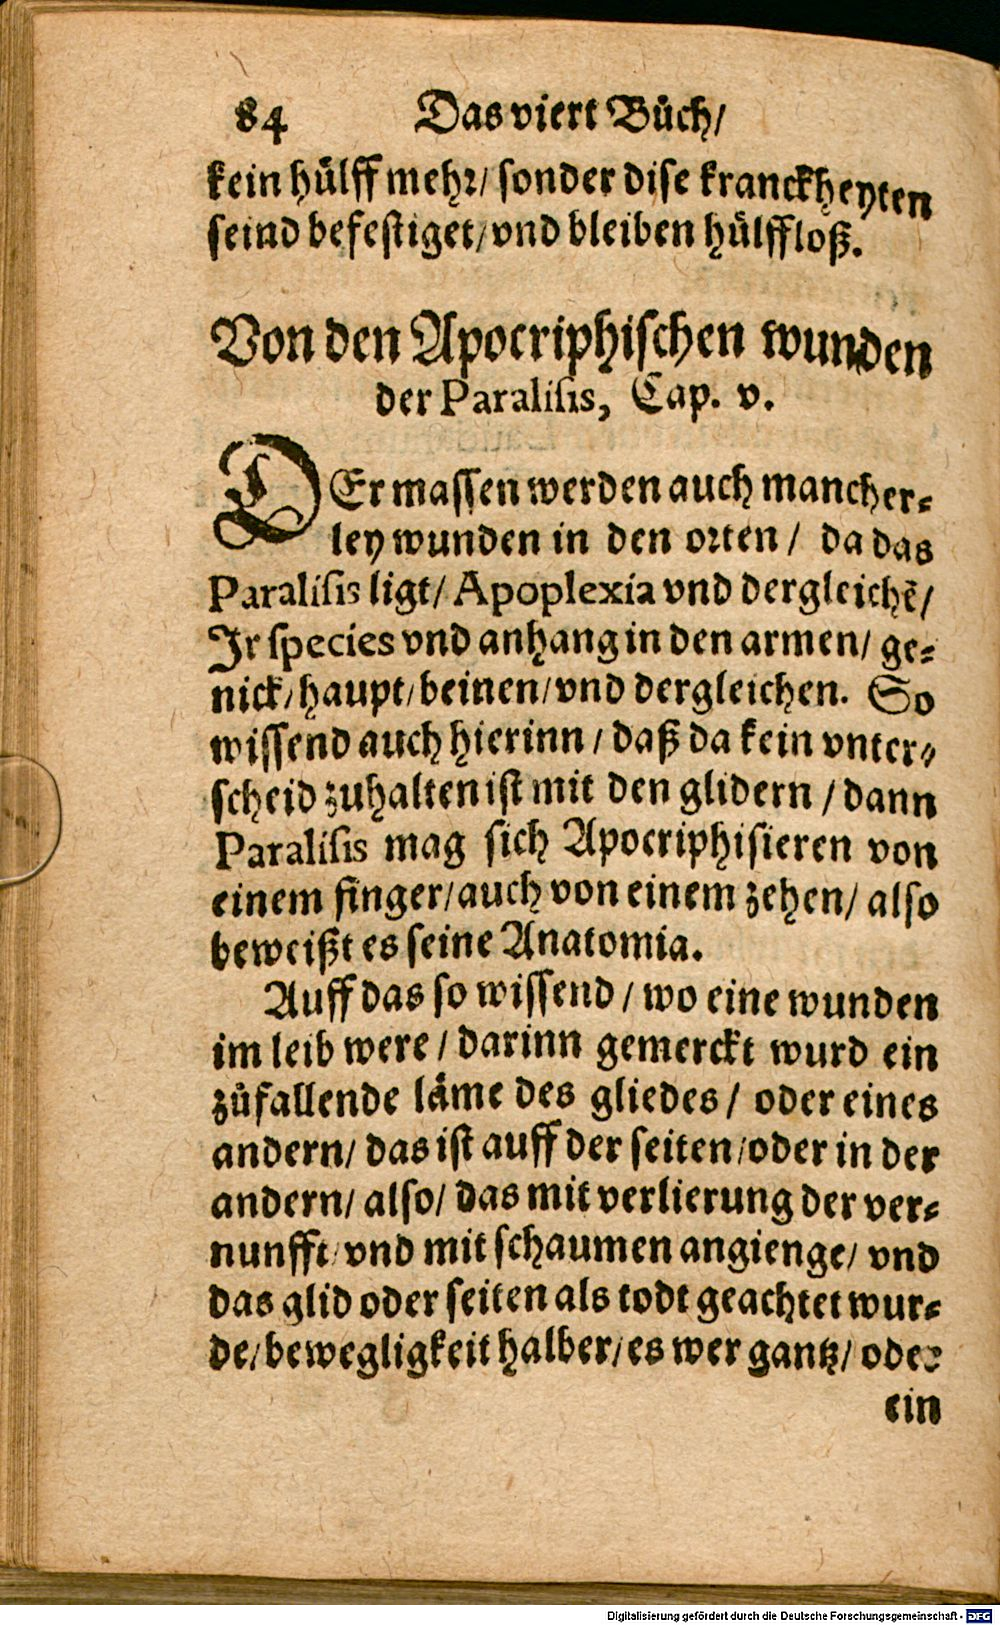 84 Das viert Bůch/
kein hülff mehr/ sonder dise kranckheyten
seind befestiget/ vnd bleiben hülffloß.
Von den Apocriphischen wunden
der Paralisis, Cap. v.
DEr massen werden auch mancher-
ley wunden in den orten / da das
Paralisis ligt/ Apoplexia vnd dergleichẽ/
Jr species vnd anhang in den armen/ ge-
nick/ haupt/ beinen/ vnd dergleichen. So
wissend auch hierinn / daß da kein vnter-
scheid zuhalten ist mit den glidern / dann
Paralisis mag sich Apocriphisieren von
einem finger/ auch von einem zehen/ also
beweißt es seine Anatomia.
Auff das so wissend / wo eine wunden
im leib were / darinn gemerckt wurd ein
zůfallende läme des gliedes / oder eines
andern/ das ist auff der seiten/ oder in der
andern/ also/ das mit verlierung der ver-
nunfft/ vnd mit schaumen angienge/ vnd
das glid oder seiten als todt geachtet wur-
de/ bewegligkeit halber/ es wer gantz/ oder
ein
Digitalisierung gefördert durch die Deutsche Forschungsgemeinschaft - DFG